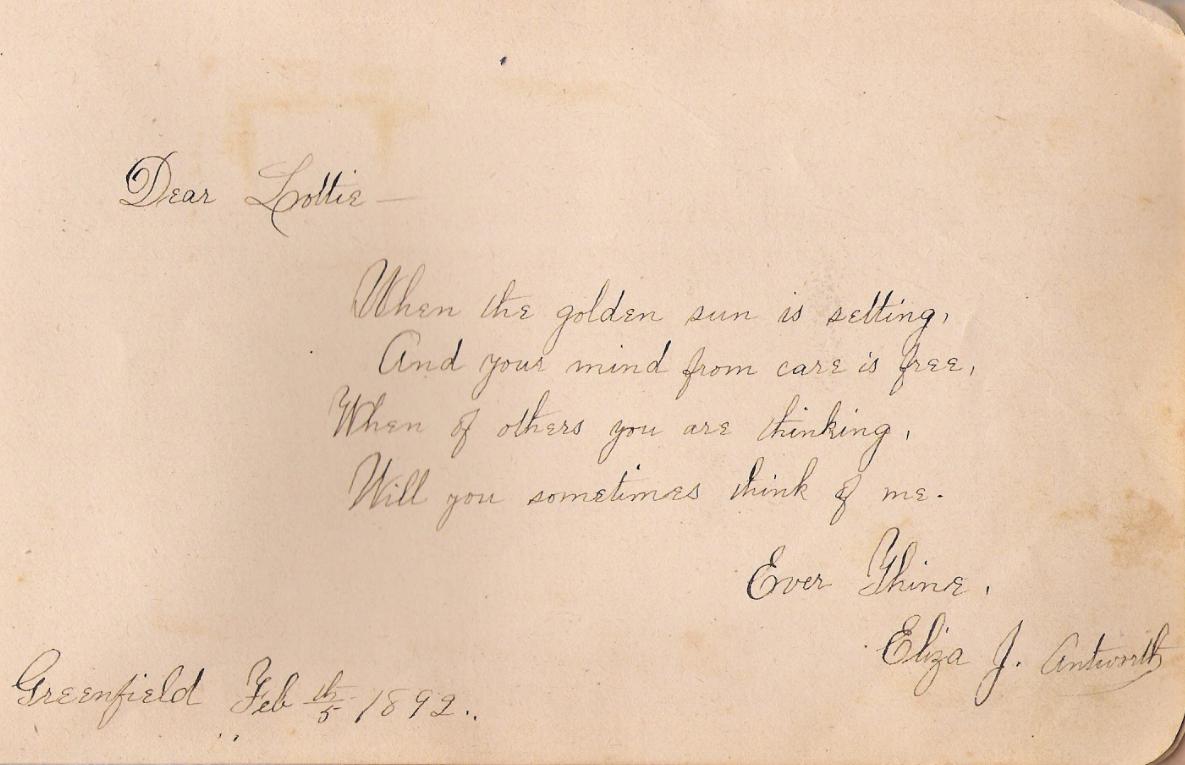 Dear Lottie —
When the golden sun is setting,
And your mind from care is free,
When of others you are thinking,
Will you sometimes think of me.
Ever Thine,
Eliza J. Antworth
Greenfield Feb 5th 1892.